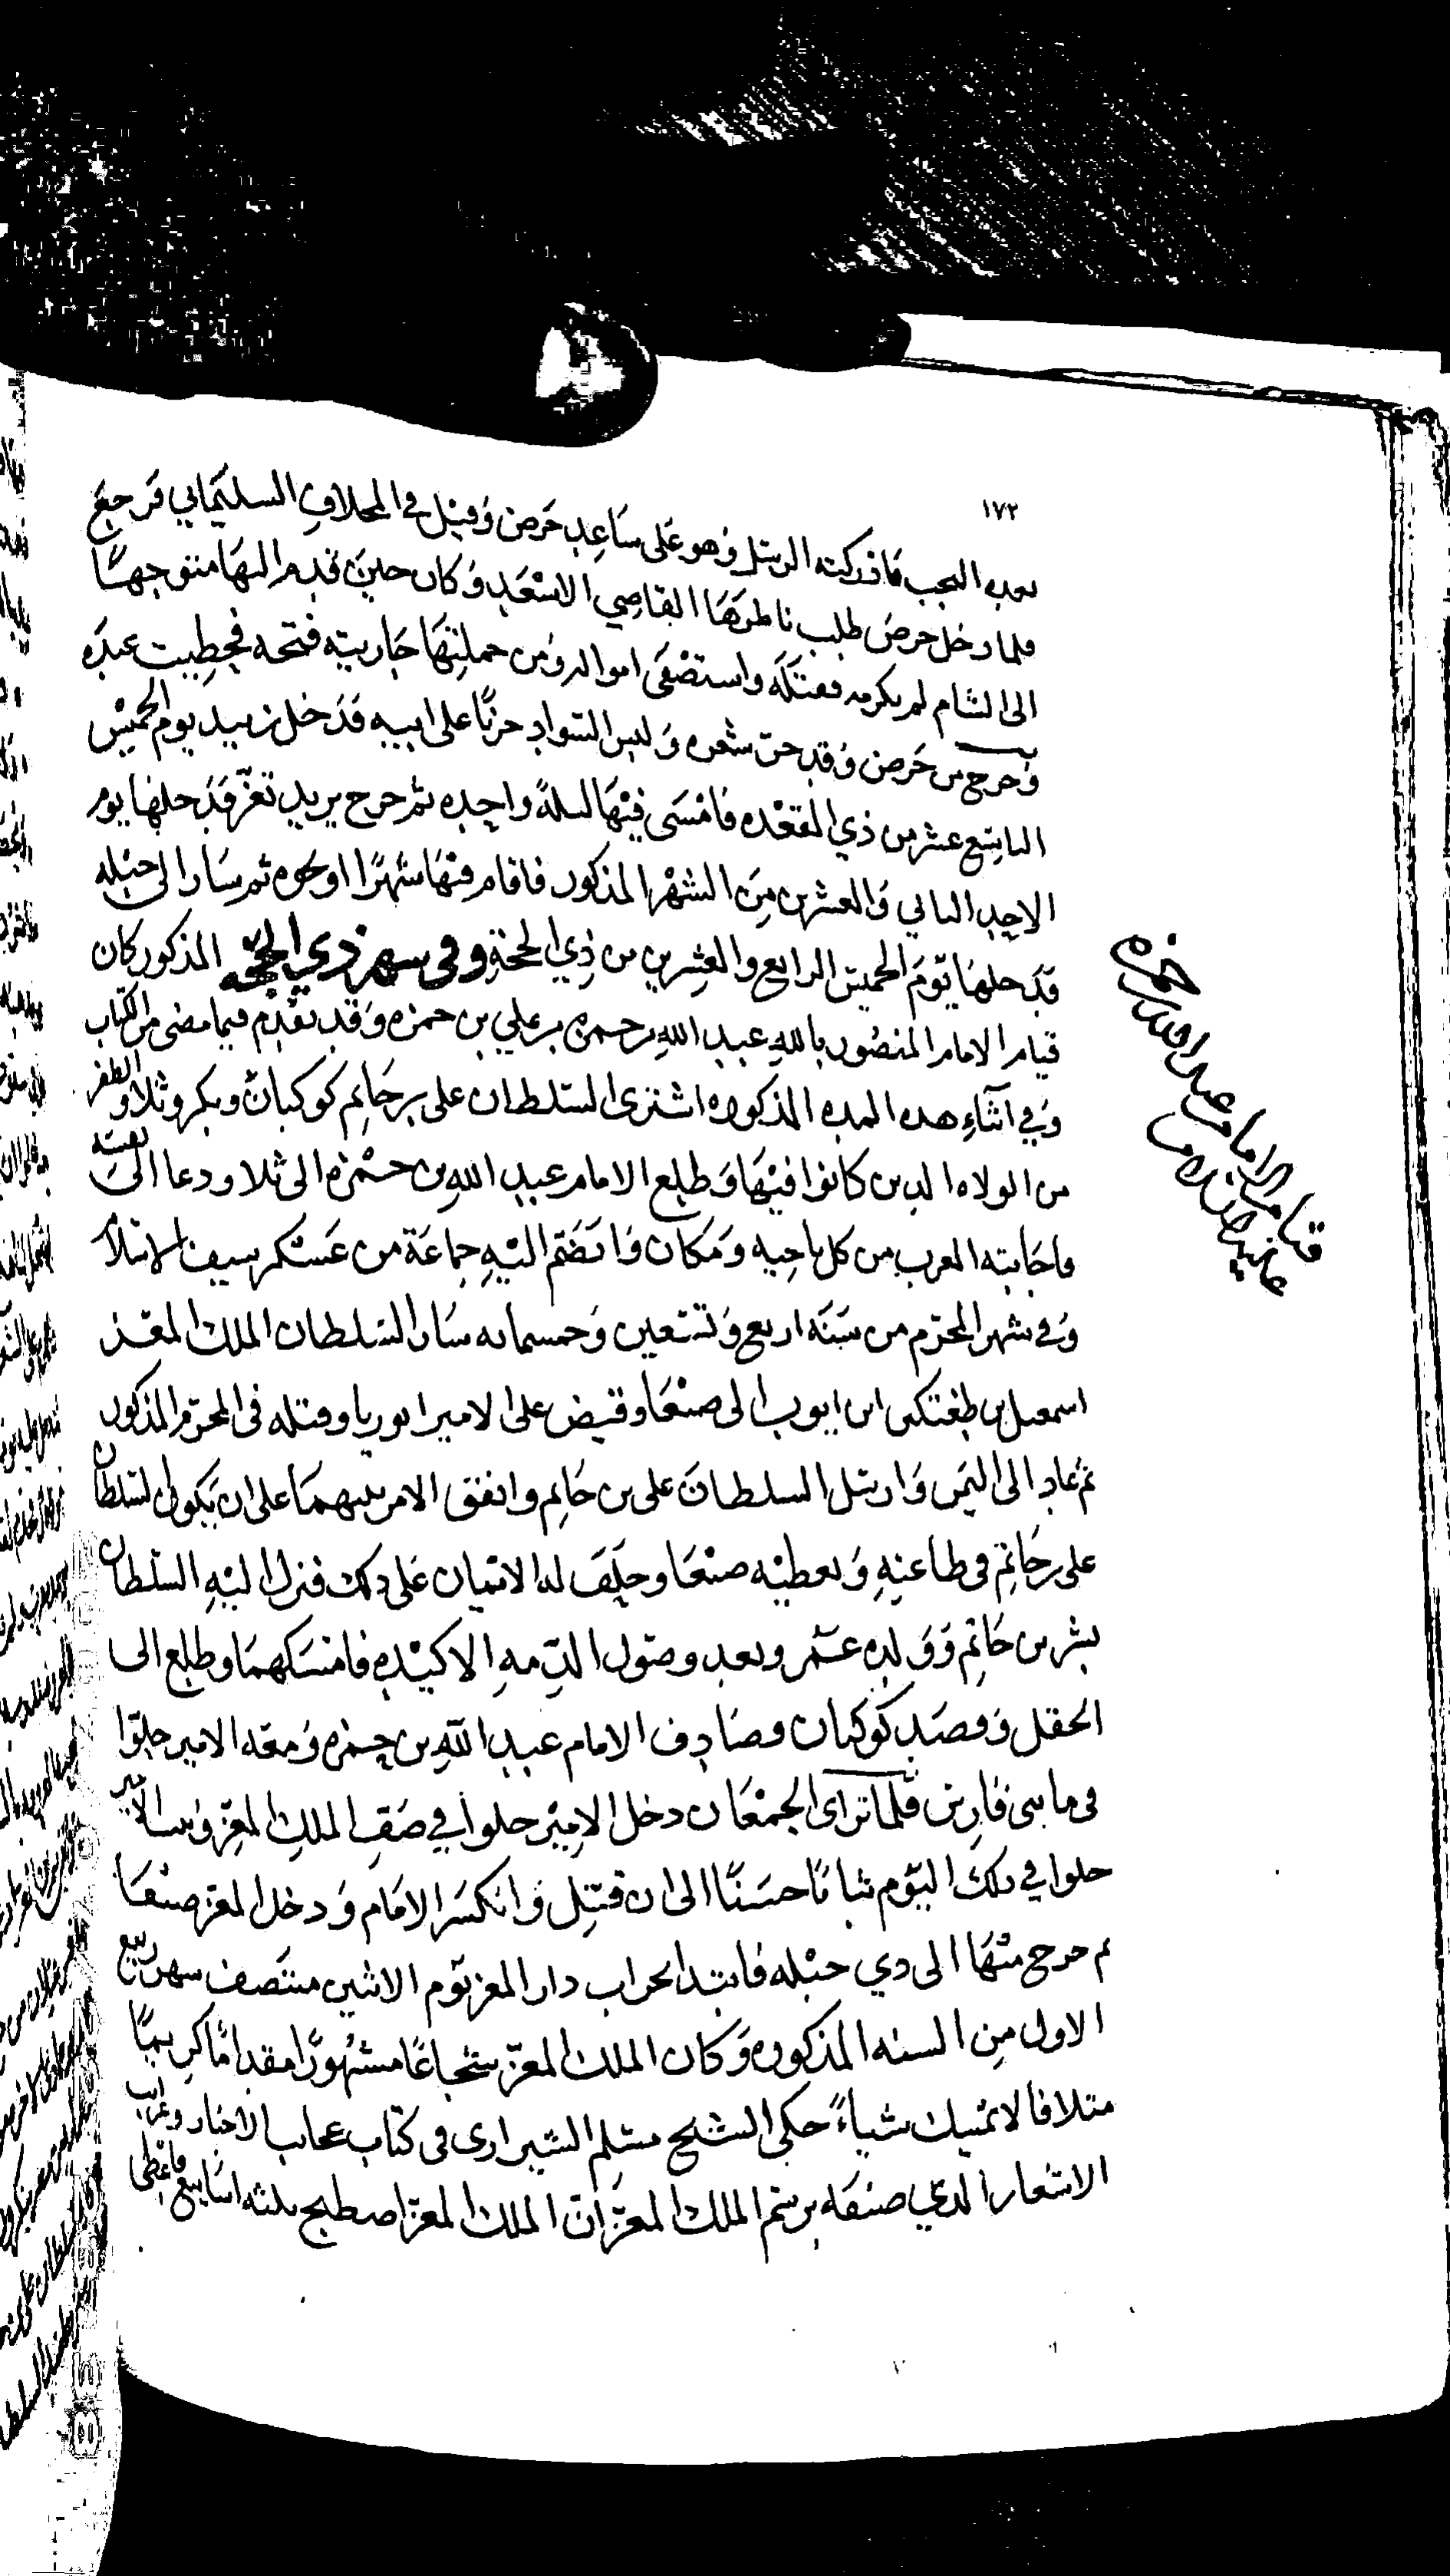 ١٧٢
بعد النجب فادركته الرسل وهو على ساعد حرض وقيل في المخلاف السليماني فرجع
فلما دخل حرض طلب ناظرها القاضي الاسعد وكان حين قدم اليها متوجها
الى الشام لم يكرمه فقتله واستصفى امواله ومن جملتها جاريته فتحه فحظيت عنده
وخرج من حرض وقد حز شعره ولبس السواد حزنا على ابيه فدخل زبيد يوم الخميس
التاسع عشر من ذي القعده فامسى فيها ليلة واحده ثم خرج يريد تعز فدخلها يوم
الاحد الثاني والعشرين من الشهر المذكور فاقام فيها شهرا او نحوه ثم سار الى جبله
فدخلها يوم الخميس الرابع والعشرين من ذي الحجة وفي شهر ذي الحجه المذكور كان
قيام الامام المنصور بالله عبد الله بن حمزه بن علي بن حمزه وقد تقدم فيما مضى من الكتاب
وفي اثناء هذه المده المذكوره اشترى السلطان على بن حاتم كوكبان وبكر وثلا والظفر
من الولاه الذين كانوا فيها وطلع الامام عبد الله بن حمزه الى ثلا ودعا الى نفسه
فاجابته العرب من كل ناحيه ومكان وانضم اليه جماعة من عسكر سيف الاسلام
وفي شهر المحرم من سنه اربع وتسعين وخمسمايه سار السلطان الملك المعز
اسمعيل بن طغتكين ابن ايوب الى صنعا وقبض على الامير ابوريا وقتله في المحرم المذكور
ثم عاد الى اليمن وارسل السلطان على بن حاتم واتفق الامر بينهما على ان يكون السلطان
على بن حاتم في طاعته ويعطيه صنعا وحلف له الايمان على ذلك فنزل اليه السلطان
بشر بن حاتم وولده عمر وبعد وصول الذمه الاكيده فامسكهما وطلع الى
الحقل وقصد كوكبان وصادف الامام عبد الله بن حمزه ومعه الامير حلوا
في ما بين فلما تراى الجمعان دخل الامير حلوا في صف الملك المعز الامير
حلوا في ذلك اليوم ثباتا حسنا الى ان قتل وانكسر الامام ودخل المعز صنعا
ثم خرج منها الى ذي جبله فابتدا بخراب دار المعز يوم الاثنين منتصف شهر ربيع
الاول من السنه المذكوره وكان الملك المعز شجاعا مشهورا مقداما كريما
متلافا لا يمسك شياء حكى الشيخ مسلم الشيرازى في كتاب عجايب الاخبار وغرايب
الاشعار الذي صنفه برسم الملك المعز ان الملك المعز اصطبح ثلثه اسابيع فاعطى
قيام الامام عبد الله بن حمزه
عليه السلام